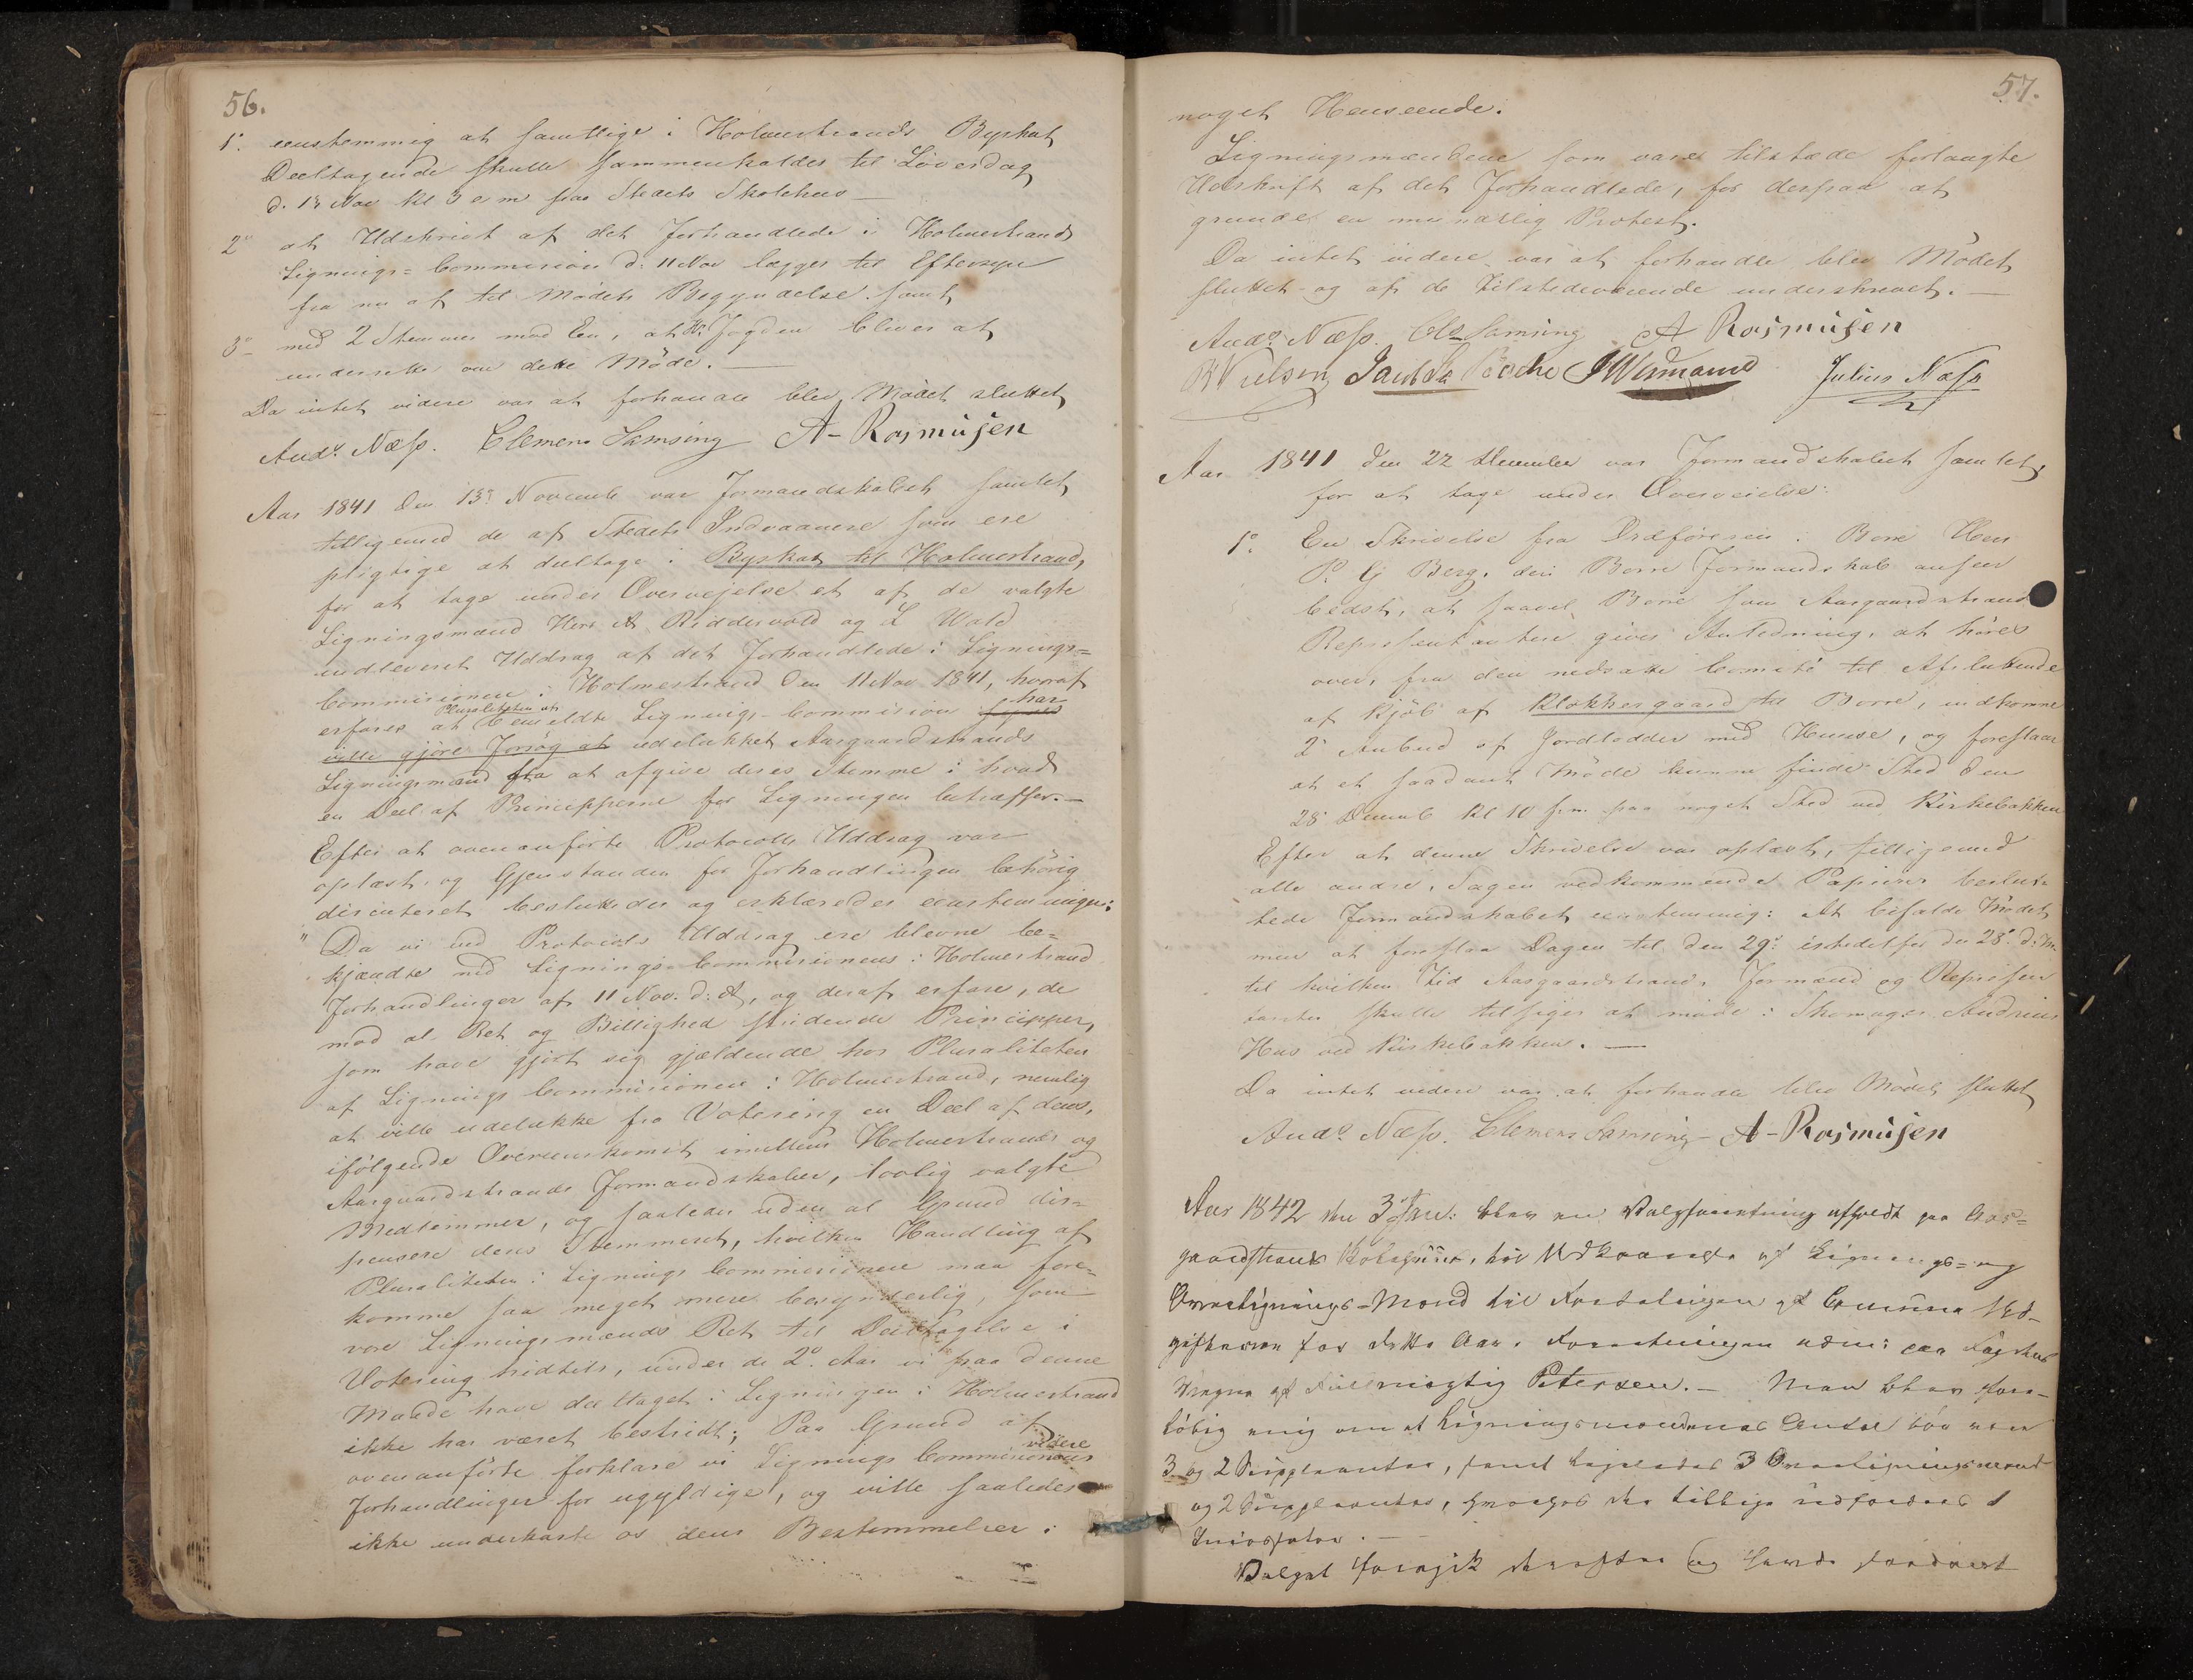 56.
1º. eenstemmig at samtlige i Holmestrands Byskat
Deeltagende skulle sammenkaldes til Løverdag
d. 13 Nov kl 3 e m paa Stedets Skolehus —
2º at Udskrivt af det Forhandlede i Holmestrands
Lignings=Commission d: 11 Nov lægges til Eftersyn
fra nu af til Mødets Begyndelse. samt
3º med 2 Stemmer mod Een, at Hr Fogden bliver at
underrette om dette Møde. —
Da intet videre var at forhandle blev Mødet sluttet
Ands. Næss. Clemens Samsing A- Rasmusen
Aar 1841 den 13º Novemb var Formandskabet samlet
tilligemed de af Stedets Indvaanere som ere
pligtige at deeltage i Byskat til Holmestrand,
for at tage under Overvejelse et af de valgte
Ligningsmænd Herr A Riddervold og L Wold
indleveret Uddrag af det Forhandlede i Lignings=
Commissionen i Holmestrand den 11 Nov 1841, hvoraf
erfares at Pluraliteten af bemeldte Lignings-Commission har
ville gjøre Forsøg at udelukket Aasgaardstrands
Ligningsmænd fra at afgive deres Stemme i hvad
en Deel af Principperne for Ligningen betræffer. —
Efter at ovenanførte Protocolls Uddrag var
oplæst, og Gjenstanden for Forhandlingen behørig
discuteret besluttedes og erklæredes eenstemmigen:
" Da vi ved Protocols Uddrag ere blevne be=
kjændte med Lignings-Commissionens i Holmestrand
Forhandlinger af 11 Nov. d: A, og deraf erfare, de
mod al Ret og Billighed stridende Principper,
som have gjort sig gjældende hos Pluraliteten
af Lignings Commissionen i Holmestrand, nemlig
at ville udelukke fra Votering en Deel af dens,
ifølgende Overeenskomst imellem Holmestrands og
Aasgaardstrands Formandskaber, lovlig valgte
Medlemmer, og saaledes uden al Grund dis=
pensere deres Stemmeret, hvilken Handling af
Pluraliteten i Lignings Commissionen maa fore=
komme saa meget mere besynderlig, som
vore Ligningsmænds Ret til Deeltagelse i
Votering hidtils, under de 2º. Aar vi paa denne
Maade have deeltaget i Ligningen i Holmestrand
ikke har været bestridt; Paa Grund af
ovenanførte forklare vi Lignings Commissionens videre
Forhandlinger for ugyldige, og ville saaledes
ikke underkaste os dens Bestemmelser i
57.
noget Henseende.
Ligningsmændene som vare tilstæde forlangte
Udskrift af det Forhandlede, for derpaa at
grunde en Protest.
Da intet videre var at forhandle blev Mødet
sluttet og af de Tilstedeværende underskrevet. —
Ands. Næss. Cls Samsing A Rasmusen
Julius Næss
Aar 1841 den 22 December var Formandskabet samlet
for at tage under Overveielse:
1º. En Skrivelse fra Ordføreren i Borre Herr
P. G Berg, den Borre Formandskab anseer
bedst, at saavel Borre som Aasgaardstrands
Repræsentantere gives Anledning, at høres
over, fra den nedsatte Comité til Afsluttende
af Kjøb af Klokkergaard til Borre, indkomne
2º Anbud af Jordlodder med Huuse, og foreslaar
at et saadant Møde kunne finde Sted den
28º Decemb Kl 10 f.m. paa noget Sted ved Kirkebakken
Efter at denne Skrivelse var oplæst, tilligemed
alle andre, Sagen vedkommende Papirer beslut-
tede Formandskabet eenstemmig: At bifalde Mødet
men at foreslaa Dagen til den 29º: istedetfor den 28º d: M.
til hvilken Tid Aasgaardstrands Formænd og Repræsen
tanter skulle tilsiges at møde i Skomager Andreas
Hus ved Kirkebakken. —
Da intet videre var at forhandle blev Mødet sluttet
Ands Næss. Clemens Samsing - A-Rasmusen
Aar 1842 den 3 Jan: blev en Valgforretning afholdt paa Aas=
gaardstrands, til Udkaarelse af Lignings= og
Overlignings=Mænd til Fordelingen af Commune Ud-
gifterne for dette Aar. Forretningen adm: paa Fogdens
Vegne af Fuldmægtig Petersen. — Man blev fore-
løbig enig om at Ligningsmændenes Antal bør være
3 og 2 Suppleanter, samt ligeledes 3 Overligningsmænd
og 2 Suppleanter, hvorhos der tillige udfordres 1
—
Valget foregik derefter og havde saadant